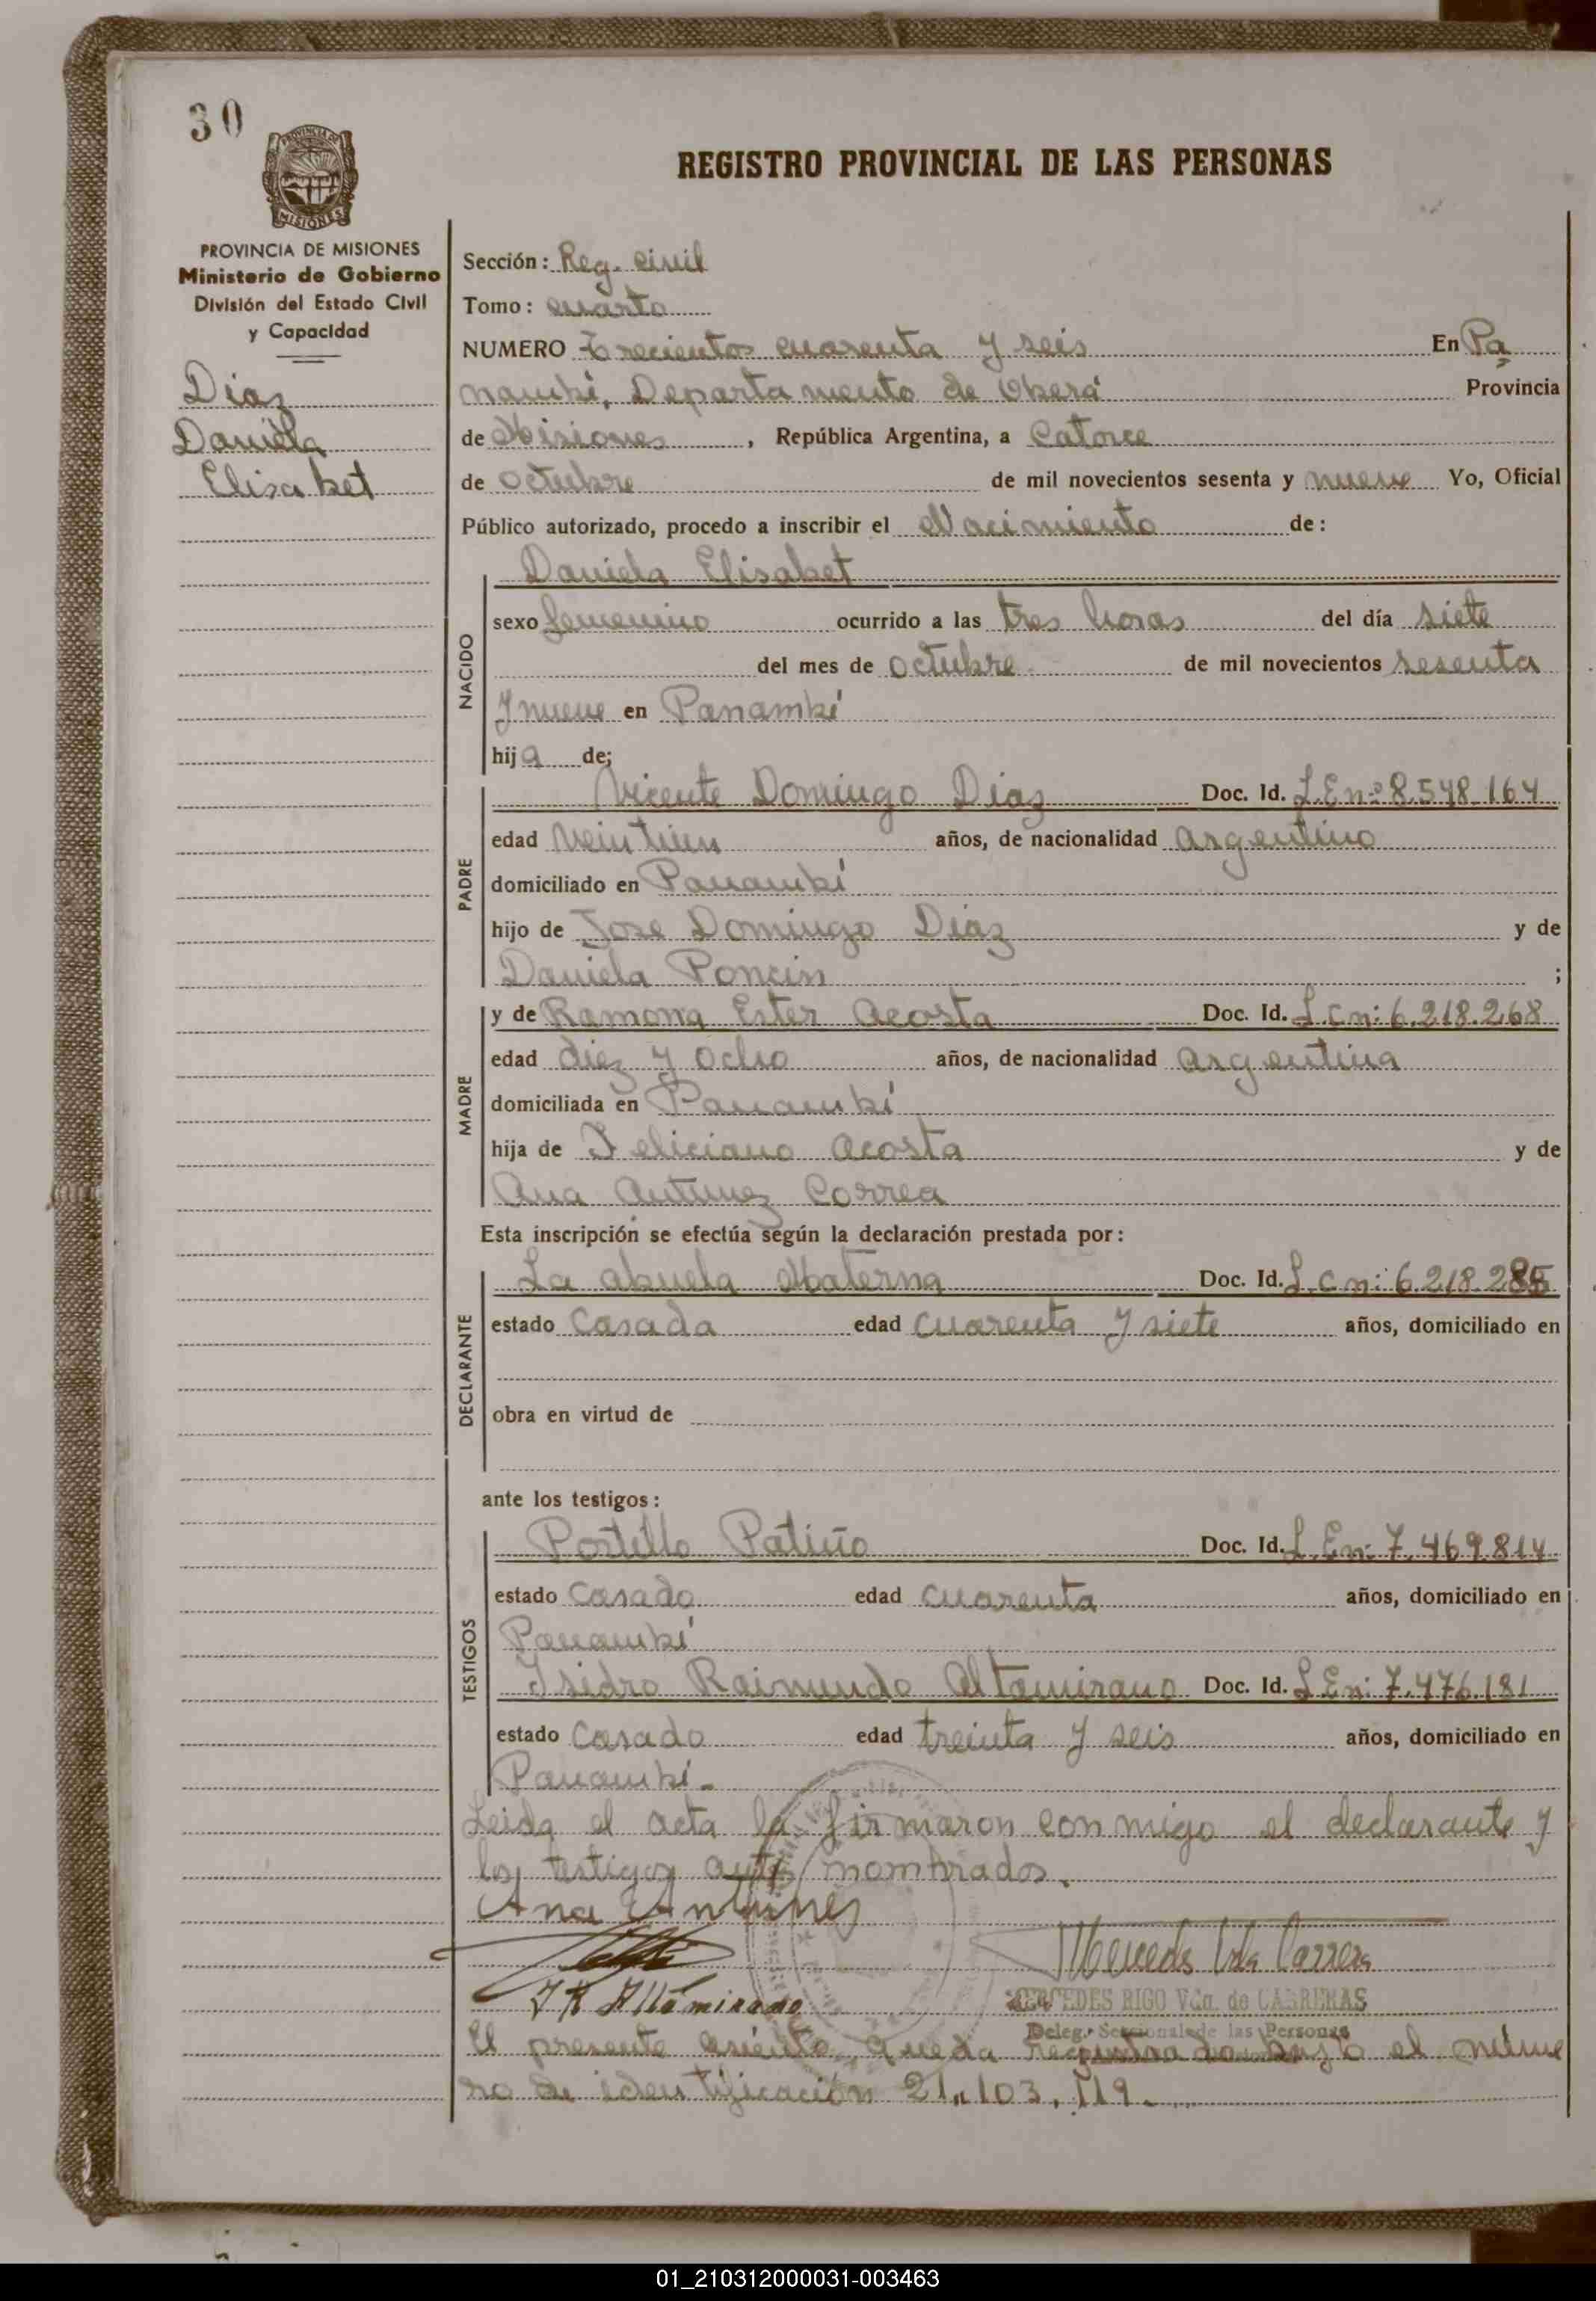 30
PROVINCIA DE
MISIONES
REGISTRO PROVINCIAL DE LAS PERSONAS
PROVINCIA DE MISIONES
Ministerio de Gobierno
División del Estado Civil
y Capacidad
Diaz
Daniela
Elisabet
Sección: Reg. civil
Tomo: cuarto
NUMERO Trecientos cuarenta y seis En Pa
nambí, Departamento de Oberá Provincia
de Misiones, República Argentina, a Catorce
de octubre de mil novecientos sesenta y nueve Yo, Oficial
Público autorizado, procedo a inscribir el Nacimiento de:
NACIDO
Daniela Elisabet
sexo femenino ocurrido a las tres horas del día siete
del mes de octubre de mil novecientos sesenta
y nueve en Panambí
hija de;
PADRE
Vicente Domingo Diaz Doc. Id. L.E nº 8.548.164
edad años, de nacionalidad argentino
domiciliado en Panambí
hijo de Jose Domingo Diaz y de
Daniela Poncin ;
MADRE
y de Ramona Ester Acosta Doc. Id. L.C n: 6.218.268
edad diez y ocho años, de nacionalidad argentina
domiciliada en Panambí
hija de Feliciano Acosta y de
Ana Antunez Correa
Esta inscripción se efectúa según la declaración prestada por:
DECLARANTE
La abuela Materna Doc. Id. L.C n: 6.218.285
estado Casada edad cuarenta y siete años, domiciliado en
obra en virtud de
ante los testigos:
TESTIGOS
Portillo Patiño Doc. Id. L.E n: 7.469.814
estado Casado edad cuarenta años, domiciliado en
Panambí
Isidro Raimundo Altamirano Doc. Id. L.E n: 7.476.181
estado Casado edad treinta y seis años, domiciliado en
Panambí.
Leida el acta la firmaron conmigo el declarante y
los testigos ante nombrados.
Ana Antunes
Mercedes Vda Carrera
J R Altamirano
MERCEDES RIGO Vda. de CABRERAS
Deleg. Seccional de las Personas
El presente asiento queda registrado bajo el núme
ro de identificación 21.103.119.
01_210312000031-003463